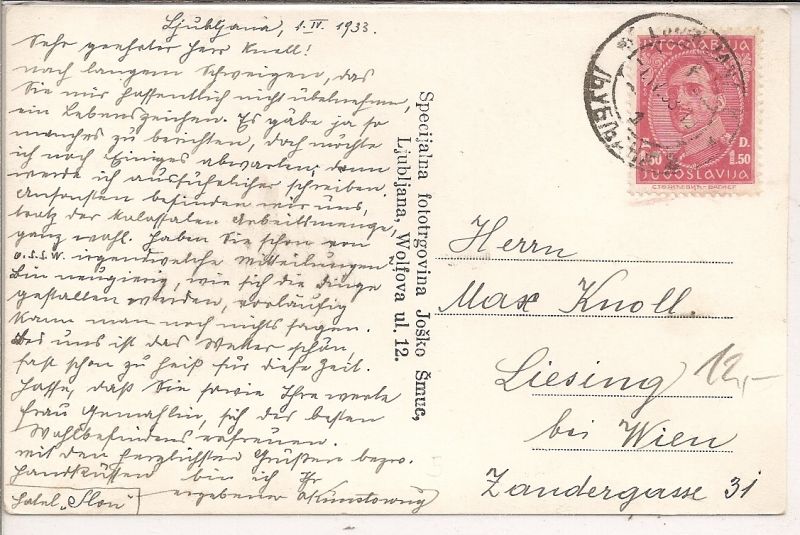 Ljubljana, 1. IV. 1933.
Sehr geehrter Herr Knoll!
nach langem Schweigen, das
Sie mir hoffentlich nicht übelnehmen,
ein Lebenszeichen. Es gäbe ja so
manches zu berichten, doch möchte
ich noch Einiges abwarten, dann
werde ich ausführlicher schreiben.
Ansonsten befinden wir uns,
trotz der kolossalen Arbeitsmenge,
ganz wohl. Haben Sie schon von
irgendwelche Mitteilungen
Bin neugierig, wie sich die Dinge
gestalten werden, vorläufig
kann man noch nichts sagen.
Bei uns ist das Wetter schön,
fast schon zu heiß für diese Zeit.
Hoffe, daß Sie sowie Ihre werte
Frau Gemahlin, sich des besten
Wohlbefindens erfreuen.
Mit den herzlichsten Grüßen bezw.
Handküssen bin ich Ihr
ergebener
Hotel „Slon"
Specijalna fototrgovina Joško Šmuc,
Ljubljana, Wolfova ul. 12.
JUGOSLAVIJA
D.
1.50
Herrn
Max Knoll.
Liesing
bei Wien
Zandergasse 31
12,-